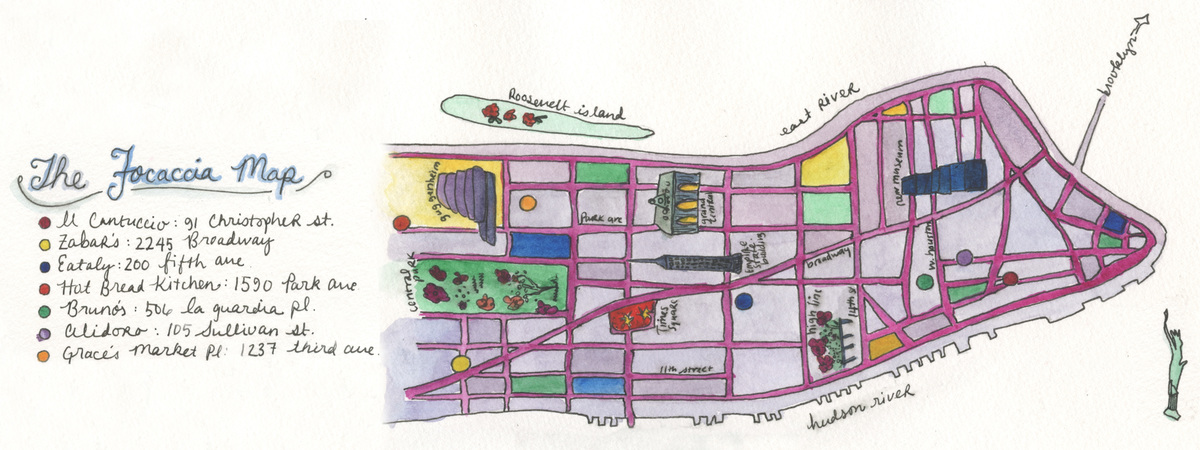 The Focaccia Map
Il Cantuccio: 91 Christopher st.
Zabar's: 2245 Broadway
Eataly: 200 fifth ave
Hot Bread Kitchen: 1590 Park ave
Bruno's: 506 la guardia pl.
Alidoro: 105 Sullivan st.
Grace's Market Pl: 1237 third ave.
Roosevelt island
east River
brooklyn
guggenheim
Park ave
grand
central
new museum
central
park
empire
state
building
broadway
w. houston
Times
Square
high line
14th st
11th street
hudson river